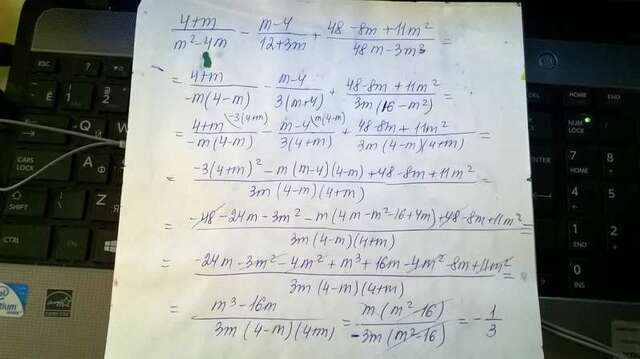 (4+m)/(m²-4m) - (m-4)/(12+3m) + (48-8m+11m²)/(48m-3m³) =
= (4+m)/(-m(4-m)) - (m-4)/(3(m+4)) + (48-8m+11m²)/(3m(16-m²)) =
= (4+m)/(-m(4-m)) \-3(4+m) - (m-4)/(3(4+m)) \m(4-m) + (48-8m+11m²)/(3m(4-m)(4+m)) =
= (-3(4+m)² - m(m-4)(4-m) + 48-8m+11m²)/(3m(4-m)(4+m)) =
= (-48-24m-3m²-m(4m-m²-16+4m)+48-8m+11m²)/(3m(4-m)(4+m)) =
= (-24m-3m²-4m²+m³+16m-4m²-8m+11m²)/(3m(4-m)(4+m)) =
= (m³-16m)/(3m(4-m)(4+m)) = (m(m²-16))/(-3m(m²-16)) = -1/3
CAPS LOCK
A
SHIFT
CTRL
intel
HOME
END
NUM LOCK
7
8
4
5
1
END
2
0
INS